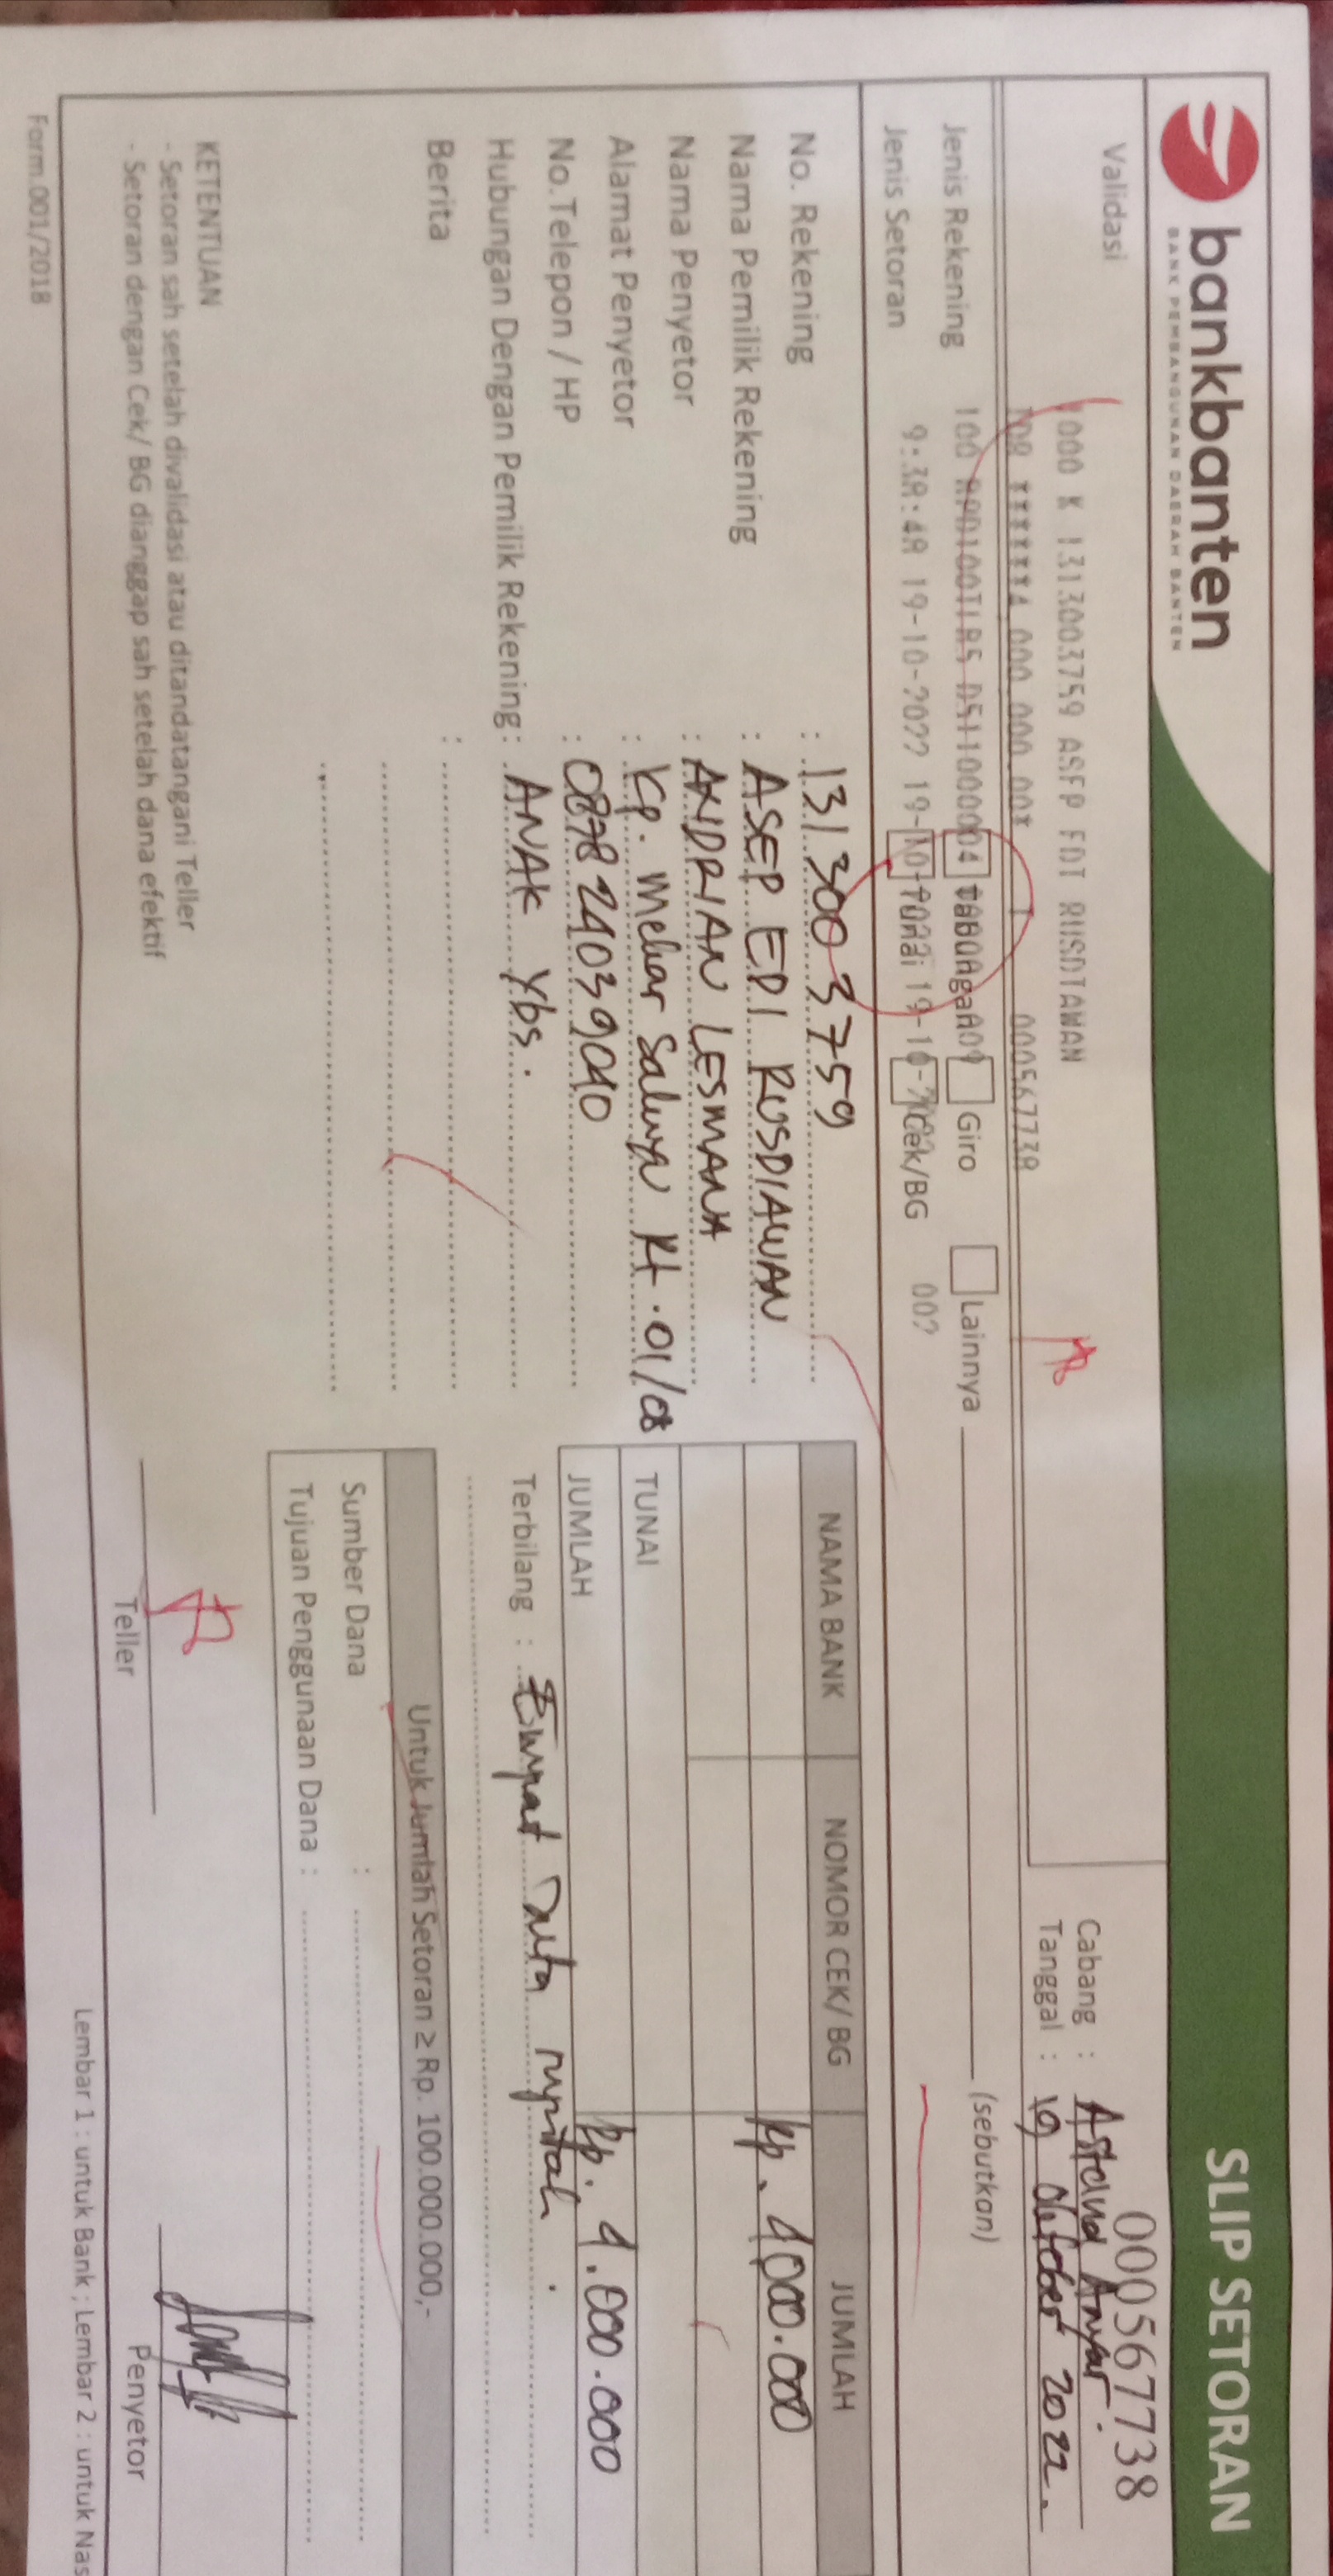 bankbanten
BANK PEMBANGUNAN DAERAH BANTEN
SLIP SETORAN
0005677738
Validasi
1000 K 1313003759 ASEP EDI RUSDIAWAN
IDR *******4,000,000.00* 0005677738
Cabang : Astana Anyar.
Tanggal : 19 oktober 2022.
Jenis Rekening Tabungan Giro Lainnya (sebutkan)
Jenis Setoran 9:38:48 19-10-2022 Tunai Cek/BG 002
No. Rekening : 1313003759
Nama Pemilik Rekening : ASEP EDI RUSDIAWAN
Nama Penyetor : ANDRIAN LESMANA
Alamat Penyetor : Kp. Mekar Saluyu Rt.01/08
No.Telepon / HP : 087824039040
Hubungan Dengan Pemilik Rekening : ANAK Ybs.
Berita :
NAMA BANK NOMOR CEK/ BG JUMLAH
Rp. 4000.000
TUNAI
JUMLAH Rp. 4.000.000
Terbilang : Empat Juta rupiah.
Untuk Jumlah Setoran ≥ Rp. 100.000.000,-
Sumber Dana :
Tujuan Penggunaan Dana :
KETENTUAN
- Setoran sah setelah divalidasi atau ditandatangani Teller
- Setoran dengan Cek/ BG dianggap sah setelah dana efektif
Teller
Penyetor
Form.001/2018
Lembar 1 : untuk Bank ; Lembar 2 : untuk Nas